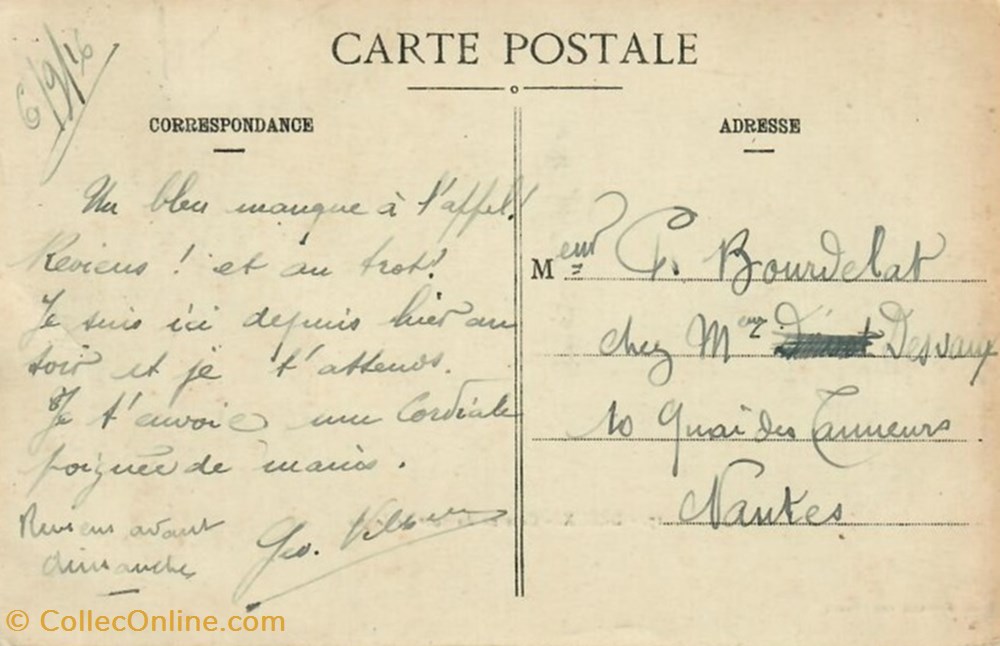 CARTE POSTALE
6/9/16
CORRESPONDANCE
Un bleu manque à l'appel!
Reviens! et au trot!
Je suis ici depuis hier au
soir et je t'attends.
Je t'envoie une cordiale
poignée de mains.
Reviens avant
dimanche
Geo.
ADRESSE
Meur P. Bourdelat
chez Meur Dessaux
10 Quai des Tanneurs
Nantes
© CollecOnline.com